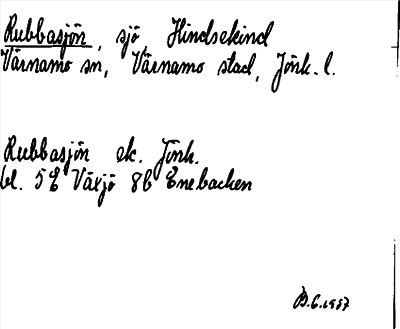 Rubbasjön, sjö Hindsekind
Värnamo sn, Värnamo stad, Jönk. l.
Rubbasjön ek. Jönk.
bl. 5E Växjö 8b Enebacken
B.G. 1987